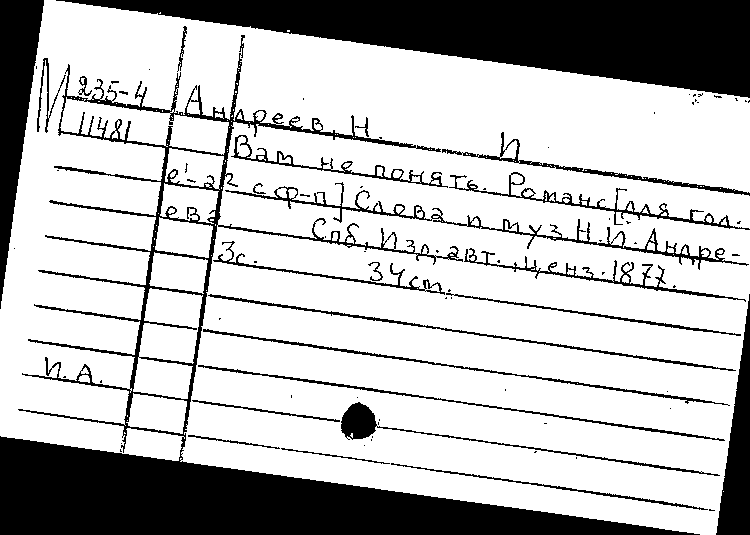 М 235-4
11481
Андреев, Н. И
Вам не понять. Романс [для гол.
е¹-а² с ф-п] Слова и муз Н.И. Андре-
ева. Спб, Изд. авт., ценз. 1877.
3с. 34 см.
И.А.